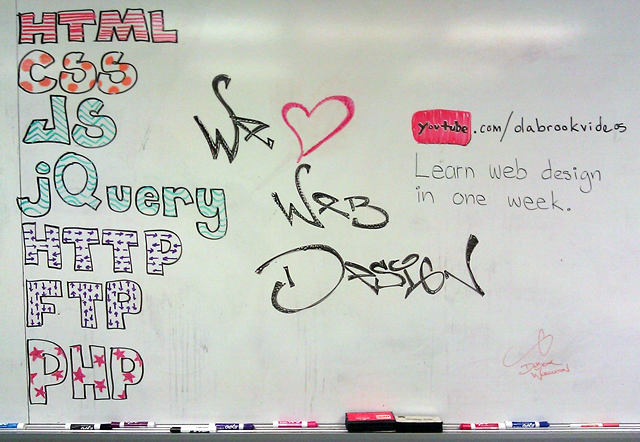 HTML
CSS
JS
jQuery
HTTP
FTP
PHP
We
Web
Design
youtube.com/olabrookvideos
Learn web design
in one week.